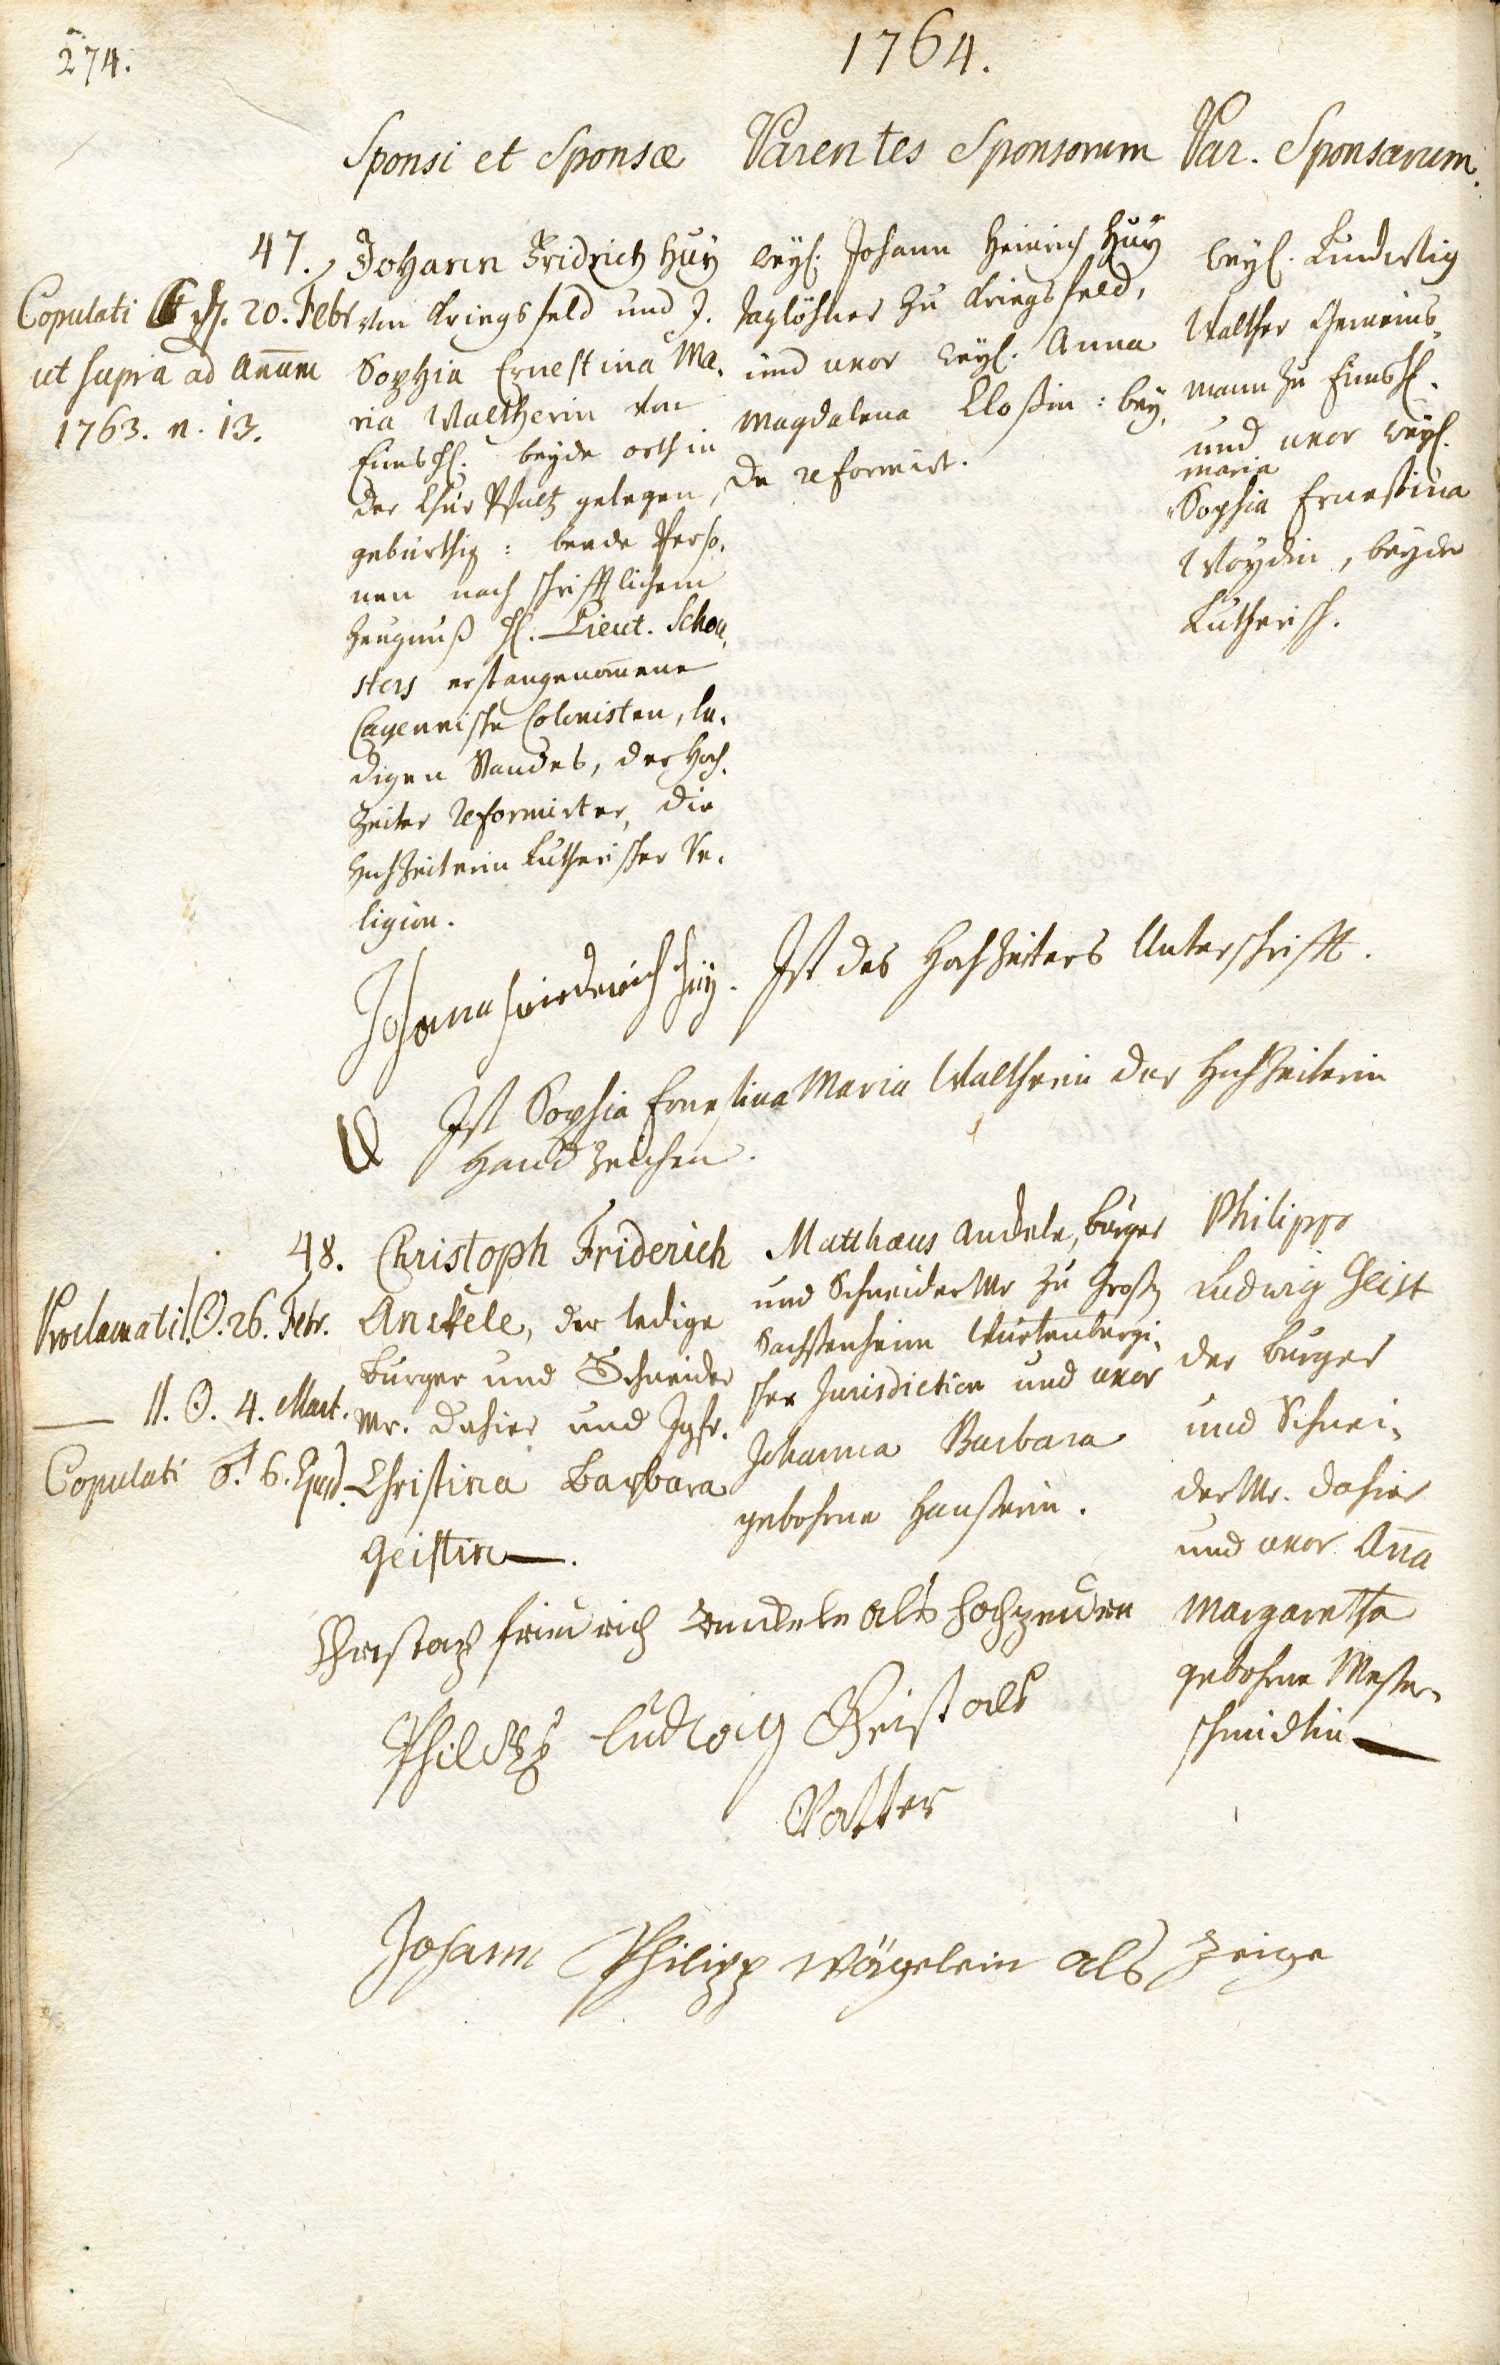 274.
1764.
Sponsi et Sponsæ
Parentes Sponsorum
Par. Sponsarum.
47.
Copulati 20. Febr.
ut supra ad Annum
1763. n. 13.
Johann Fridrich Huÿ
von Kriegsfeld und J.
Sophia Ernestina Ma-
ria Waltherin von
beyde orth in
der Chur Pfaltz gelegen,
gebürthig: beede Perso-
nen nach schrifftlichem
Zeugnuß H. Lieut. Schou-
sters erst angenom̄ene
Cayennische Colonisten, le-
digen Standes, der Hoch-
zeiter Reformirter, die
Hochzeiterin Lutherischer Re-
ligion.
weyl. Johann Heinrich Huÿ
Taglöhner zu Kriegsfeld,
und uxor weyl. Anna
Magdalena Cloßin: bey-
de reformirt.
weyl. Ludwig
Walther Gemeins-
mann zu
und uxor weyl.
maria
Sophia Ernestina
Woydin, beyde
Lutherisch.
Johann Friederich Huÿ. Ist des Hochzeiters Unterschrifft.
Ist Sophia Ernestina Maria Waltherin der Hochzeiterin
Handzeichen.
48.
Proclamati I. ☉. 26. Febr.
— II. ☉. 4. Mart.
Copulati ♂. 6. Ejusd.
Christoph Friderich
Anckele, der ledige
Burger und Schneider
Mr. dahier und Jgfr.
Christina Barbara
Geistin —.
Matthæus Andele, burger
und Schneider Mr zu Groß
Sachßenheim Würtenbergi-
scher Jurisdiction und uxor
Johanna Barbara
gebohrne Haußerin.
Philipp
Ludwig Geist
der burger
und Schnei-
der Mr. dahier
und uxor An̄a
Margaretha
gebohrne Meßer-
schmidtin —
Christoph friedrich Andele als hochzeiter
Philipp Ludwig Geist als
Vatter
Johann Philipp Vögelein als Zeige